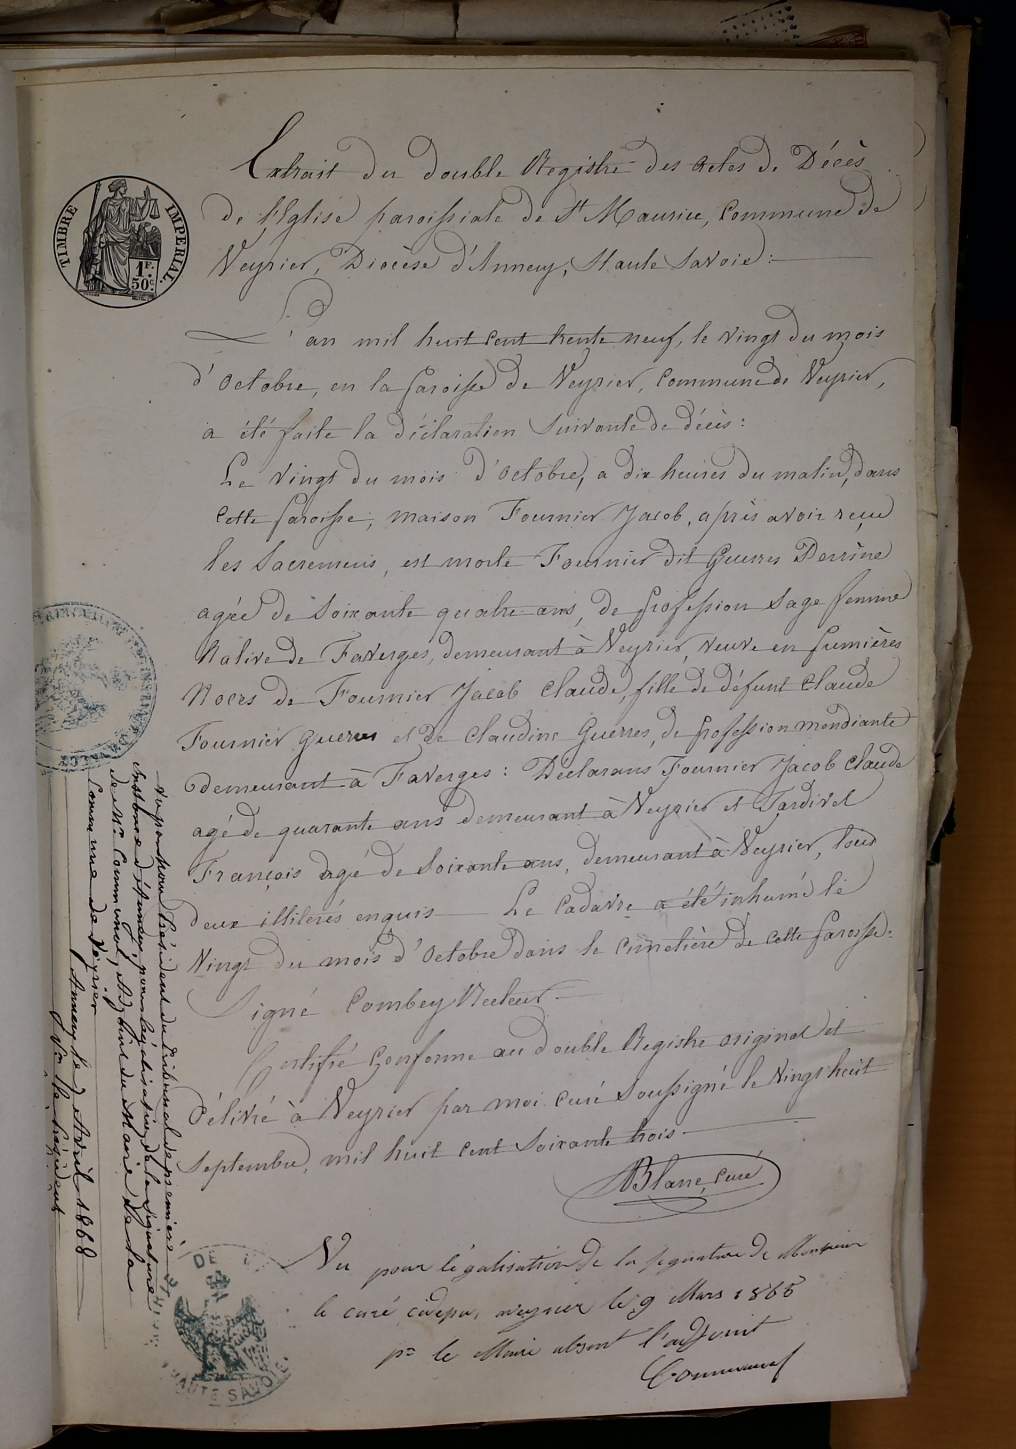 Extrait du double Registre des Actes de Décès
de l'Eglise paroissiale de St Maurice, Commune de
Veyrier, Diocèse d'Annecy, Haute Savoie:
TIMBRE IMPERIAL.
1F.
50c.
L'an mil huit cent trente neuf, le vingt du mois
d'Octobre, en la paroisse de Veyrier, Commune de Veyrier,
a été faite la déclaration suivante de décès:
Le vingt du mois d'Octobre, a dix heures du matin, dans
cette paroisse, maison Fournier Jacob, après avoir reçue
les Sacremens, est morte Fournier dit Guerres Perrine
agée de soixante quatre ans, de profession sage femme
Native de Faverges, demeurant à Veyrier, veuve en premières
Noces de Fournier Jacob Claude, fille de défunt Claude
Fournier Guerres et de Claudine Guerres, de profession mendiante
demeurant à Faverges: Déclarans Fournier Jacob Claude
agé de quarante ans demeurant à Veyrier et Tardivel
François agé de soixante ans, demeurant à Veyrier, tous
deux illitérés enquis Le Cadavre a été inhumé le
Vingt du mois d'Octobre dans le cimetière de cette paroisse.
Signé Combey Recteur
Certifié Conforme au double Registre original et
Délivré à Veyrier par moi curé soussigné le Vingt huit
Septembre, mil huit cent soixante trois
Blanc, curé
Vu pour légalisation de la signature de Monsieur
le curé Veyrier le 9 Mars 1866
pr le Maire absent l'adjoint
HAUTE SAVOIE
Vu par Nous Président du Tribunal de première
Instance d'Annecy, pour légalisation de la signature
de Mr Adjoint du Maire de la
Commune de Veyrier
Annecy le 2 Avril 1868
Pr le Président